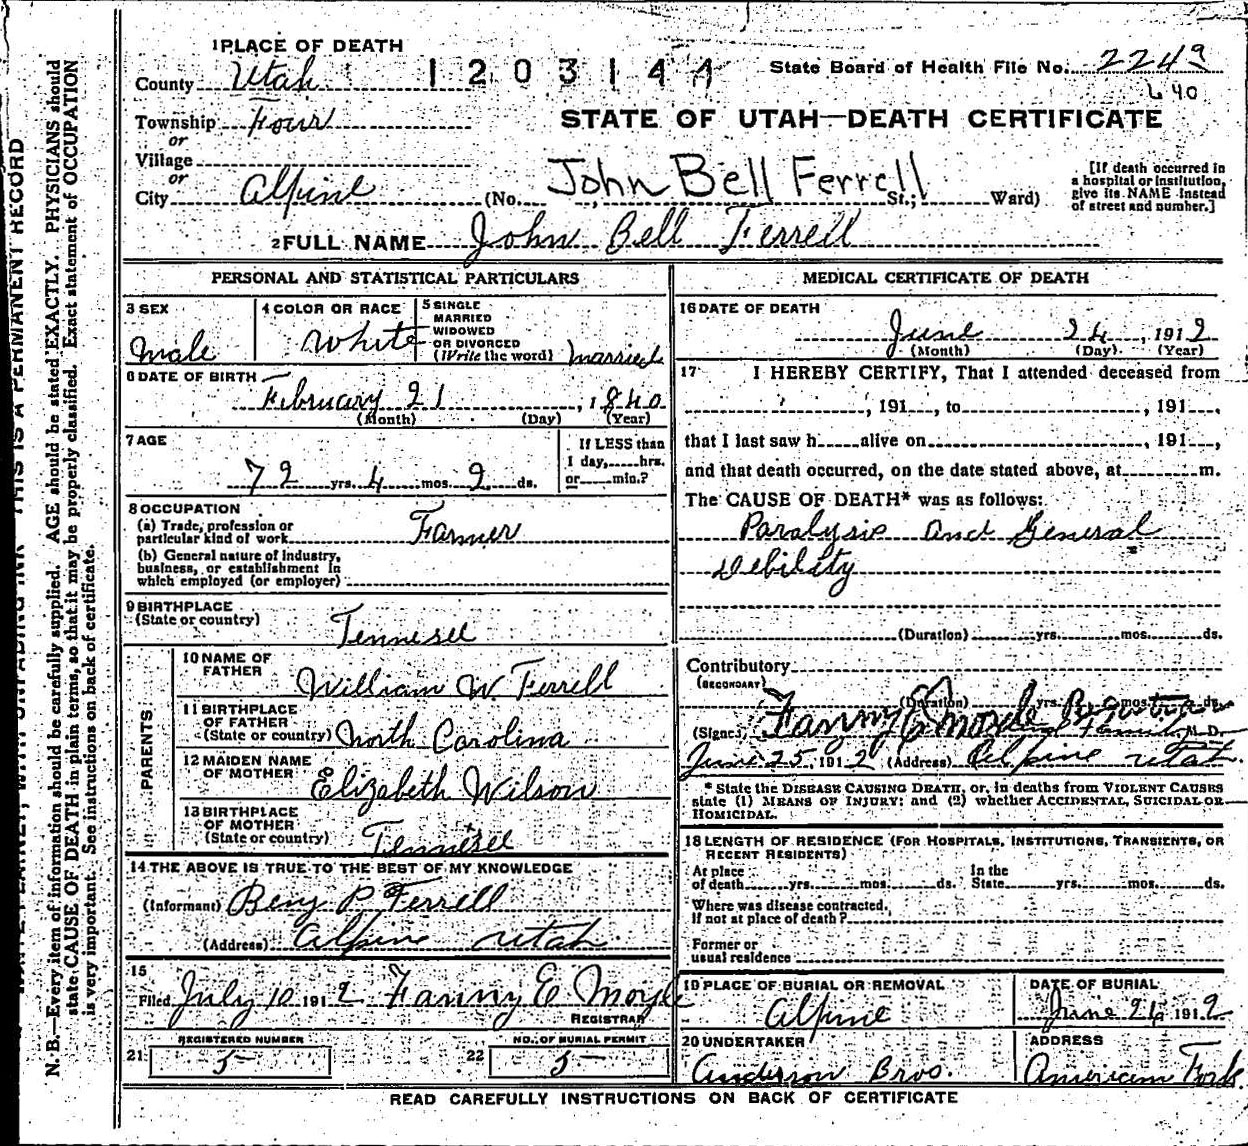 1 PLACE OF DEATH
County Utah
120314A
State Board of Health File No. 2243
640
Township Four
STATE OF UTAH—DEATH CERTIFICATE
or
Village
or
City Alpine (No. St.; Ward)
John Bell Ferrell
[If death occurred in
a hospital or institution,
give its NAME instead
of street and number.]
2 FULL NAME John Bell Ferrell
PERSONAL AND STATISTICAL PARTICULARS
3 SEX
Male
4 COLOR OR RACE
White
5 SINGLE
MARRIED
WIDOWED
OR DIVORCED
(Write the word) Married
6 DATE OF BIRTH
February 21, 1840
(Month) (Day) (Year)
7 AGE
72 yrs. 4 mos. 2 ds.
If LESS than
1 day, hrs.
or min.?
8 OCCUPATION
(a) Trade, profession or
particular kind of work Farmer
(b) General nature of Industry,
business, or establishment in
which employed (or employer)
9 BIRTHPLACE
(State or country)
Tennesee
PARENTS
10 NAME OF
FATHER
William W Ferrell
11 BIRTHPLACE
OF FATHER
(State or country) North Carolina
12 MAIDEN NAME
OF MOTHER
Elizabeth Wilson
13 BIRTHPLACE
OF MOTHER
(State or country) Tennesee
14 THE ABOVE IS TRUE TO THE BEST OF MY KNOWLEDGE
(Informant) Benj P Ferrell
(Address) Alpine Utah
15
Filed July 10 1912 Fanny E Moyle
REGISTRAR
REGISTERED NUMBER
21 5
NO. OF BURIAL PERMIT
22 5
MEDICAL CERTIFICATE OF DEATH
16 DATE OF DEATH
June 24, 1912
(Month) (Day) (Year)
17 I HEREBY CERTIFY, That I attended deceased from
, 191 , to , 191 ,
that I last saw h alive on , 191 ,
and that death occurred, on the date stated above, at m.
The CAUSE OF DEATH* was as follows:
Paralysis and General
Debility
(Duration) yrs. mos. ds.
Contributory
(SECONDARY)
(Duration) yrs. mos. ds.
(Signed) Fanny E Moyle M. D.
June 25, 1912 (Address) Alpine Utah
* State the DISEASE CAUSING DEATH, or, in deaths from VIOLENT CAUSES
state (1) MEANS OF INJURY; and (2) whether ACCIDENTAL, SUICIDAL OR
HOMICIDAL.
18 LENGTH OF RESIDENCE (FOR HOSPITALS, INSTITUTIONS, TRANSIENTS, OR
RECENT RESIDENTS)
At place
of death yrs. mos. ds.
In the
State yrs. mos. ds.
Where was disease contracted,
If not at place of death?
Former or
usual residence
19 PLACE OF BURIAL OR REMOVAL
Alpine
DATE OF BURIAL
June 26 1912
20 UNDERTAKER
Anderson Bros.
ADDRESS
American Fork
READ CAREFULLY INSTRUCTIONS ON BACK OF CERTIFICATE
THIS IS A PERMANENT RECORD
N. B.—Every item of information should be carefully supplied. AGE should be stated EXACTLY. PHYSICIANS should
state CAUSE OF DEATH in plain terms, so that it may be properly classified. Exact statement of OCCUPATION
is very important. See instructions on back of certificate.